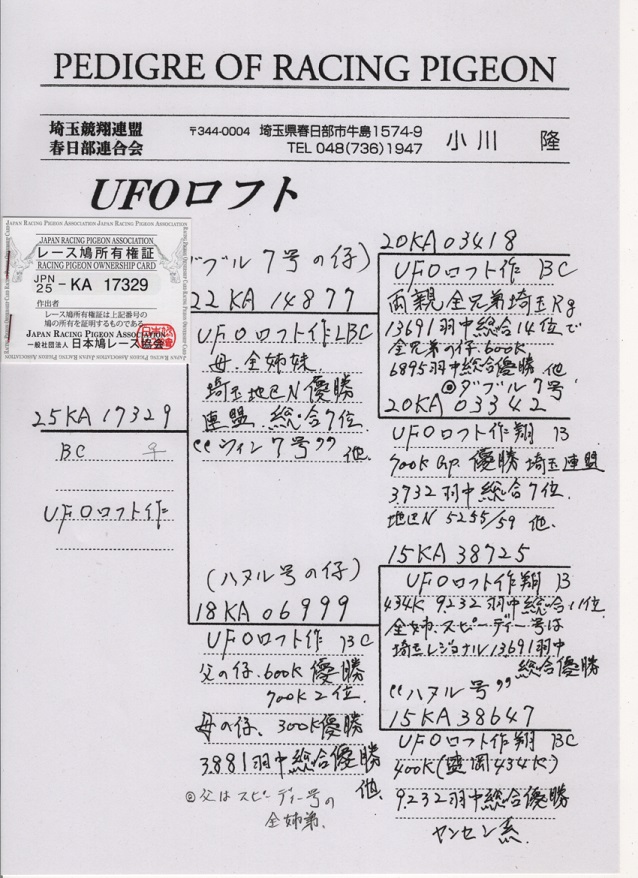 PEDIGRE OF RACING PIGEON
埼玉競翔連盟
春日部連合会
〒344-0004 埼玉県春日部市牛島1574-9
TEL 048(736)1947
小川 隆
UFOロフト
JAPAN RACING PIGEON ASSOCIATION JAPAN RACING PIGEON ASSOCIATION
JAPAN RACING PIGEON ASSOCIATION
レース鳩所有権証
RACING PIGEON OWNERSHIP CARD
JPN
25 - KA 17329
作出者
レース鳩所有権証は上記番号の
鳩の所有を証明するものである
JAPAN RACING PIGEON ASSOCIATION
一般社団法人 日本鳩レース協会
25KA17329
BC ♀
UFOロフト作
(ダブル7号の仔)
22KA14877
UFOロフト作LBC
母.全姉妹
埼玉地区N優勝
連盟.総合7位
“ツィン7号” 他.
(ハヌル号の仔)
18KA06999
UFOロフト作 BC
父の仔.600K優勝
700K2位.
母の仔、300K優勝
3.881羽中総合優勝
他.
◎父はスピーディー号の
全姉弟.
20KA03418
UFOロフト作 BC
両親全兄弟埼玉Rg
13691羽中総合14位で
全兄弟の仔.600K
6895羽中総合優勝 他
◎ダブル7号
20KA03342
UFOロフト作翔 B
700K GP. 優勝 埼玉連盟
3.732羽中総合7位.
地区N 5255/59 他.
15KA38725
UFOロフト作翔 B
434K 9232羽中総合11位
全姉.スピーディー号は
埼玉レジョナル13691羽中
総合優勝
“ハヌル号”
15KA38647
UFOロフト作翔 BC
400K(盛岡434K)
9.232羽中総合優勝
ヤンセン系.